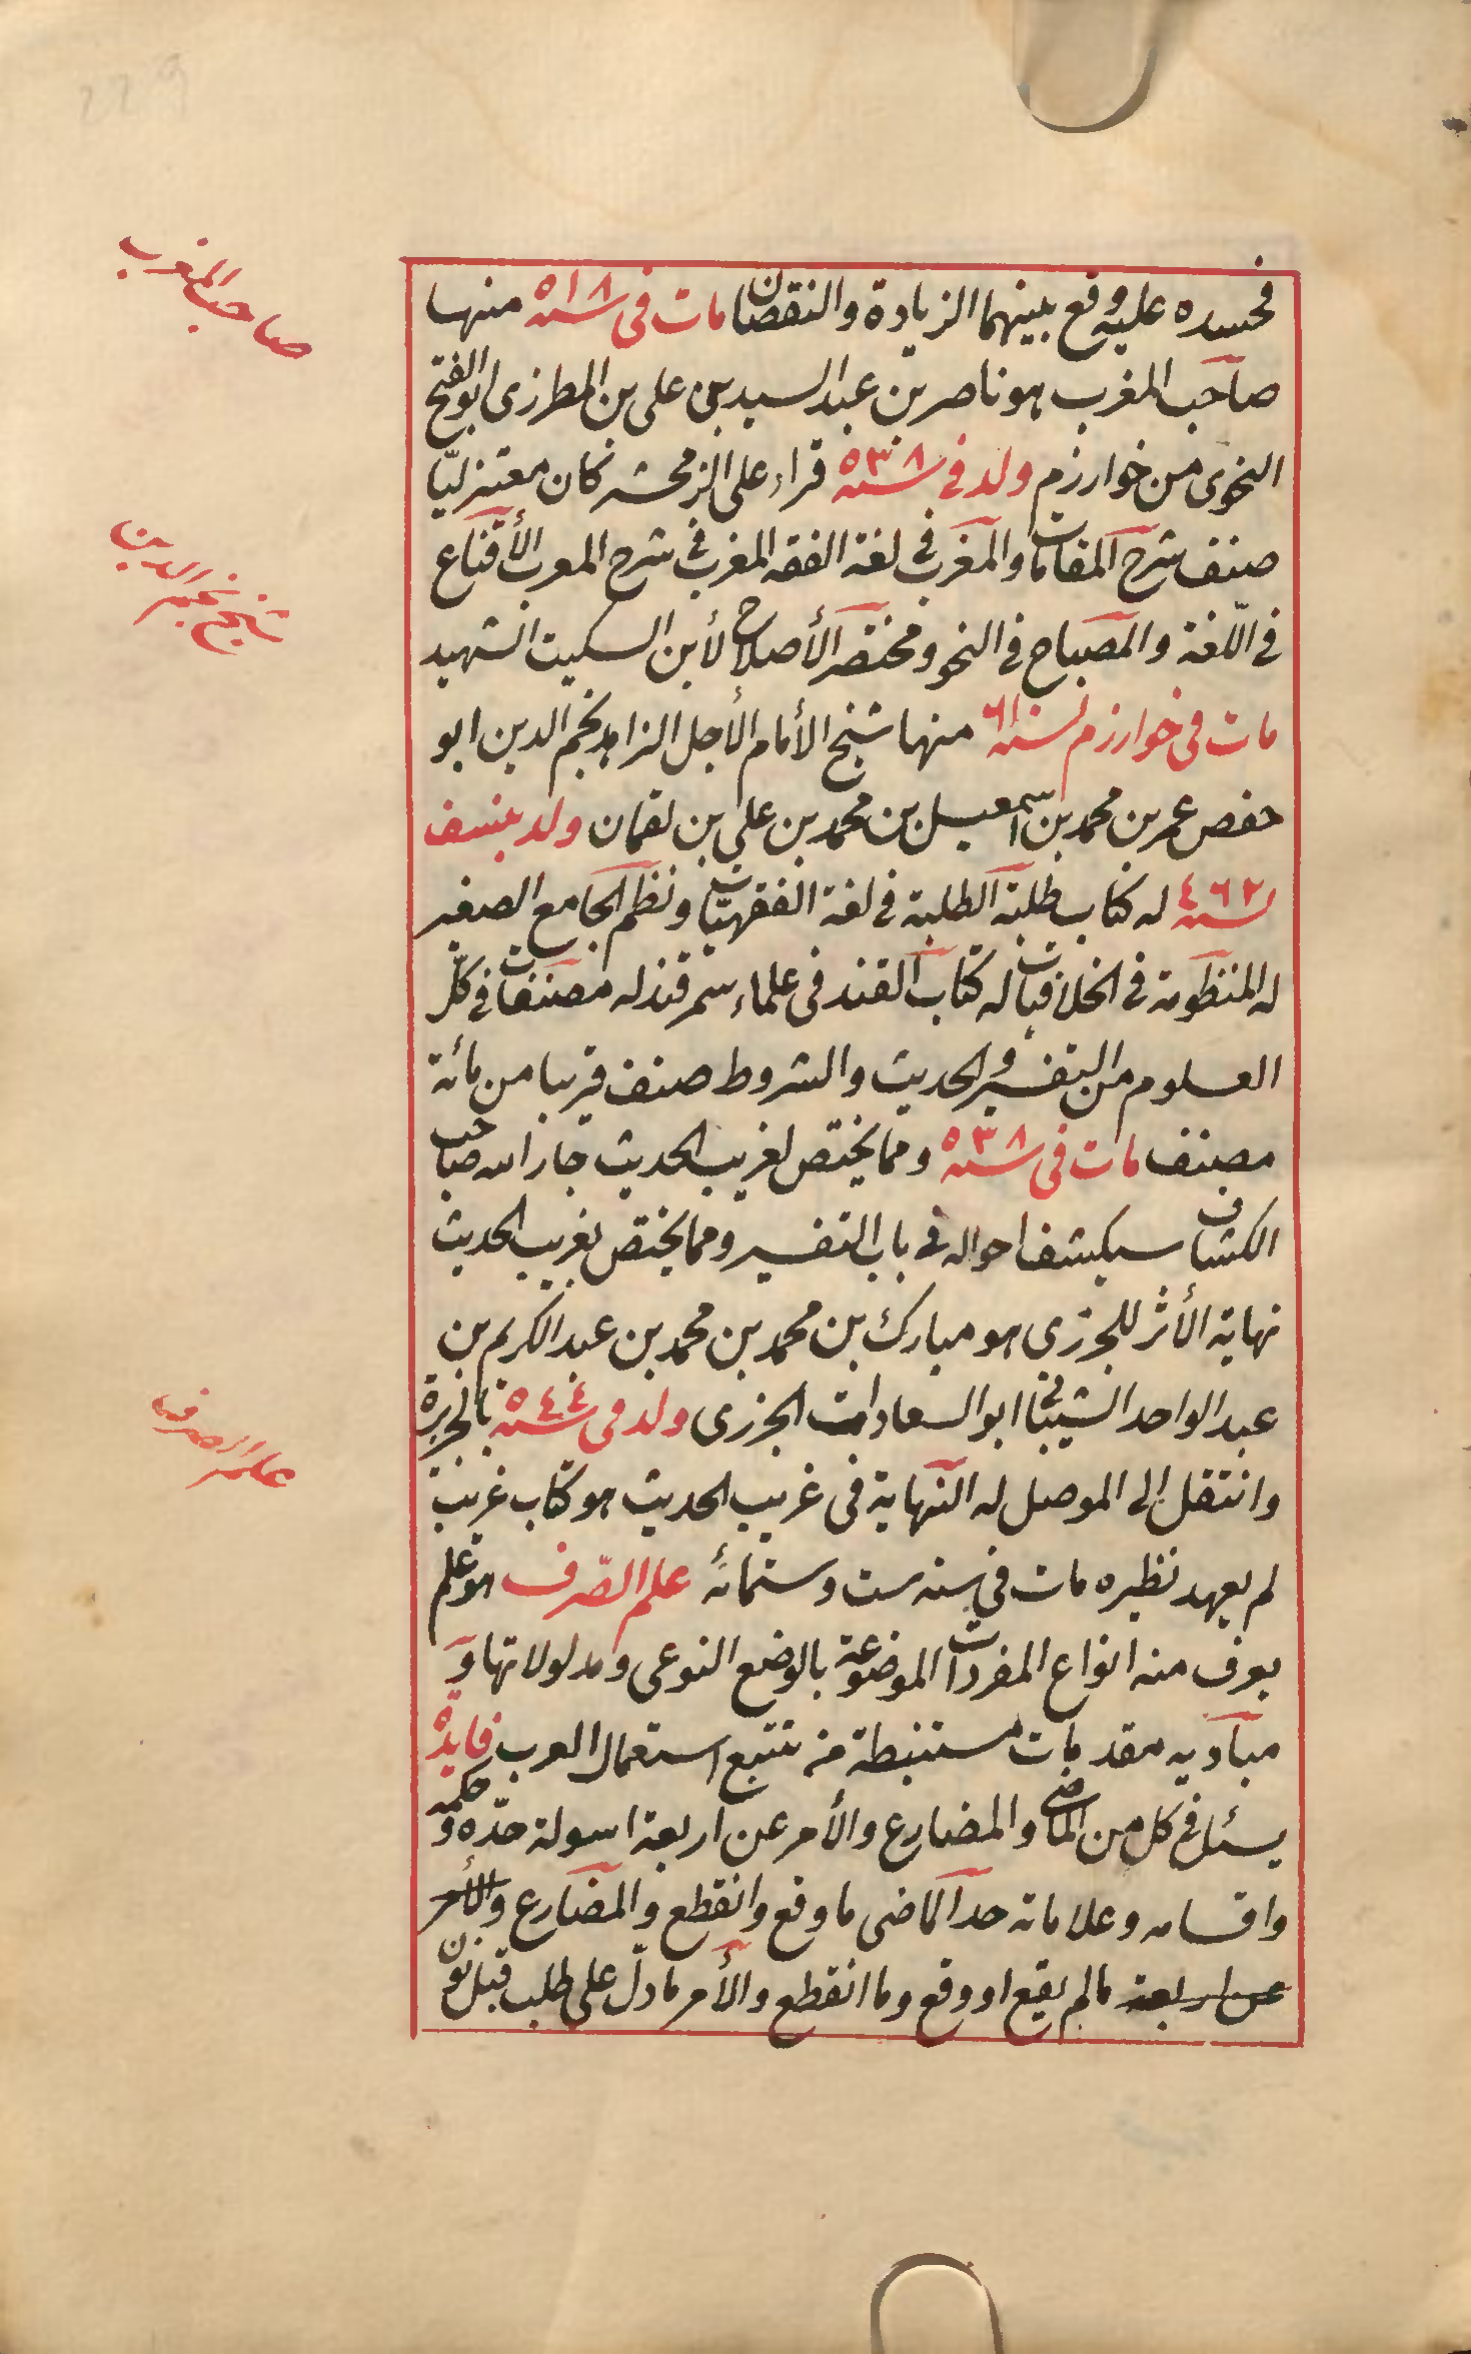 فحسده عليه وقع بينهما الزيادة والنقصان مات فى سنه ٥١٨ منها
صاحب المغرب هو ناصر بن عبد السيد بن على بن المطرزى ابو الفتح
النحوى من خوارزم ولد فى سنه ٥٣٨ قراء على الزمحشر كان معتزليّا
صنف شرح المقامات والمغرب فى لغة الفقه المغرب فى شرح المعرب الأقناع
فى اللّغة والمصباح فى النحو ومختصر الأصلاح لأبن السكيت الشهيد
مات فى خوارزم سنه ٦١ منها شيخ الأمام الأجل الزاهد نجم الدين ابو
حفص عمر بن محمد بن اسمعيل بن محمد بن على بن لقمان ولد بنسف
سنه ٤٦٢ له كتاب طلبة الطلبة فى لغة الفقهيّات ونظم الجامع الصغير
له المنظومة فى الخلافيات له كتاب القند فى علماء سمرقند له مصنفات فى كلّ
العلوم من التفسير والحديث والشروط صنف قريبا من مائة
مصنف مات فى سنه ٥٣٨ ومما يختص لغريب الحديث جار الله صاحب
الكشاف سيكشف احواله فى باب التفسير ومما يختص بغريب الحديث
نهاية الأثر للجزرى هو مبارك بن محمد بن محمد بن عبد الكريم بن
عبد الواحد الشيبانى ابو السعادات الجزرى ولد فى سنه ٥٤٤ بالجزيرة
وانتقل الى الموصل له النهاية فى غريب الحديث هو كتاب غريب
لم يعهد نظيره مات فى سنه ست وستمائة علم الصّرف هو علم
يعرف منه انواع المفردات الموضوعة بالوضع النوعى ومدلولاتها و
مباديه مقدمات مستنبطة من تتبع استعمال العرب فايدة
يسئل فى كل من الماضى والمضارع والأمر عن اربعة اسولة حدّه وحكمه
واقسامه وعلاماته حد الماضى ما وقع وانقطع والمضارع والأمر
عن اربعة مالم يقع او وقع وما انقطع والأمر ما دلّ على طلب قبل نون
صاحب المغرب
شيخ نجم الدين
علم الصرف
229